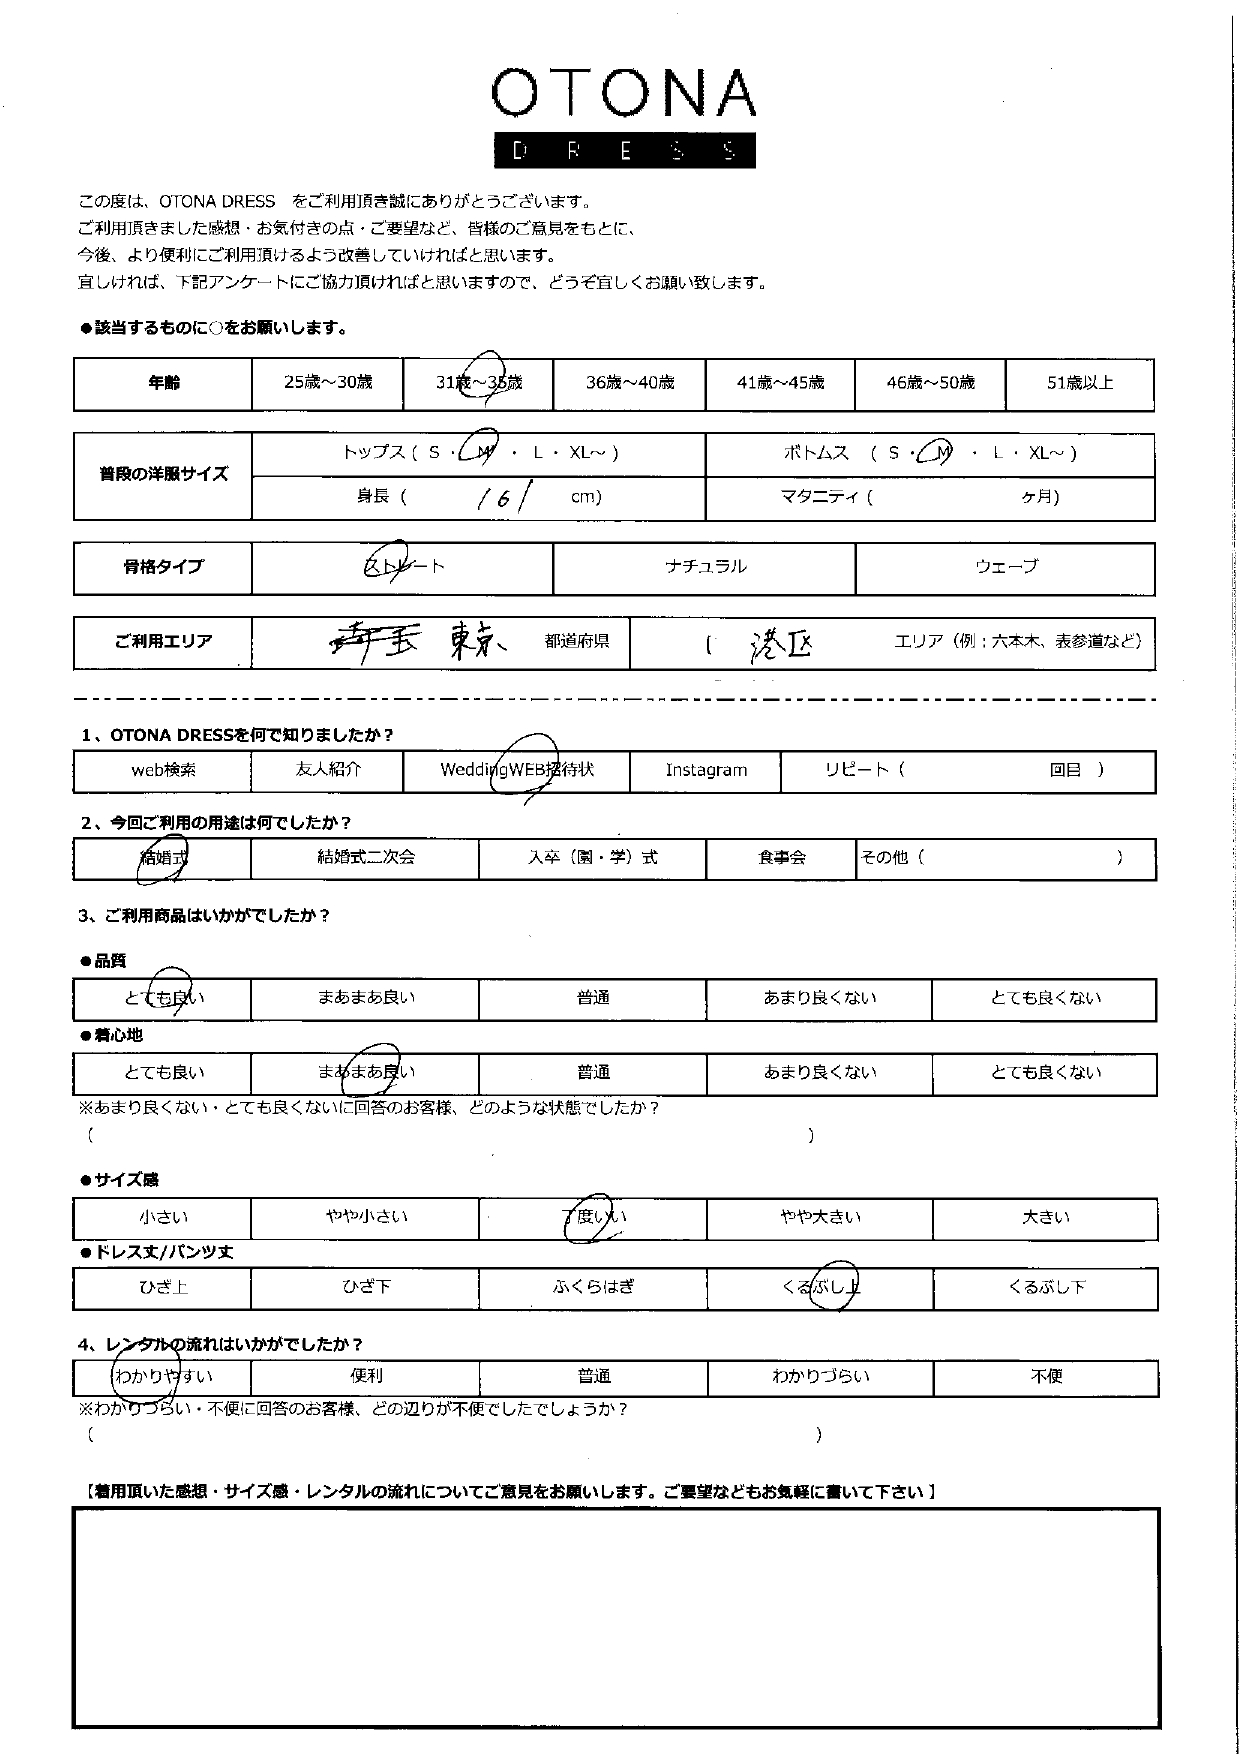 OTONA
DRESS
この度は、OTONA DRESS　をご利用頂き誠にありがとうございます。
ご利用頂きました感想・お気付きの点・ご要望など、皆様のご意見をもとに、
今後、より便利にご利用頂けるよう改善していければと思います。
宜しければ、下記アンケートにご協力頂ければと思いますので、どうぞ宜しくお願い致します。
●該当するものに○をお願いします。
年齢 25歳～30歳 31歳～35歳 36歳～40歳 41歳～45歳 46歳～50歳 51歳以上
普段の洋服サイズ
トップス ( S ・ M ・ L ・ XL～ ) ボトムス ( S ・ M ・ L ・ XL～ )
身長 ( 161 cm) マタニティ ( ケ月)
骨格タイプ ストレート ナチュラル ウェーブ
ご利用エリア 東京 都道府県 ( 港区 エリア（例：六本木、表参道など）
1、OTONA DRESSを何で知りましたか？
web検索 友人紹介 WeddingWEB招待状 Instagram リピート ( 回目 )
2、今回ご利用の用途は何でしたか？
結婚式 結婚式二次会 入卒（園・学）式 食事会 その他 ( )
3、ご利用商品はいかがでしたか？
●品質
とても良い まあまあ良い 普通 あまり良くない とても良くない
●着心地
とても良い まあまあ良い 普通 あまり良くない とても良くない
※あまり良くない・とても良くないに回答のお客様、どのような状態でしたか？
( )
●サイズ感
小さい やや小さい 丁度いい やや大きい 大きい
●ドレス丈/パンツ丈
ひざ上 ひざ下 ふくらはぎ くるぶし上 くるぶし下
4、レンタルの流れはいかがでしたか？
わかりやすい 便利 普通 わかりづらい 不便
※わかりづらい・不便に回答のお客様、どの辺りが不便でしたでしょうか？
( )
【着用頂いた感想・サイズ感・レンタルの流れについてご意見をお願いします。ご要望などもお気軽に書いて下さい】